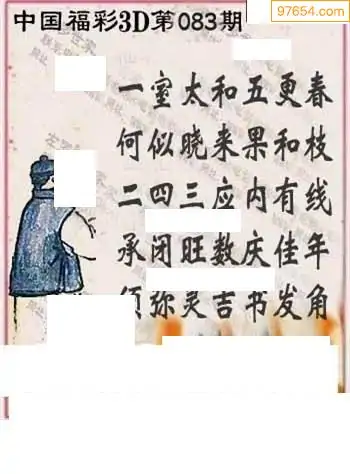 97654.com
中国福彩3D第083期
一室太和五更春
何似晓来果和枝
二四三应内有线
承闭旺数庆佳年
弥灵吉书发角